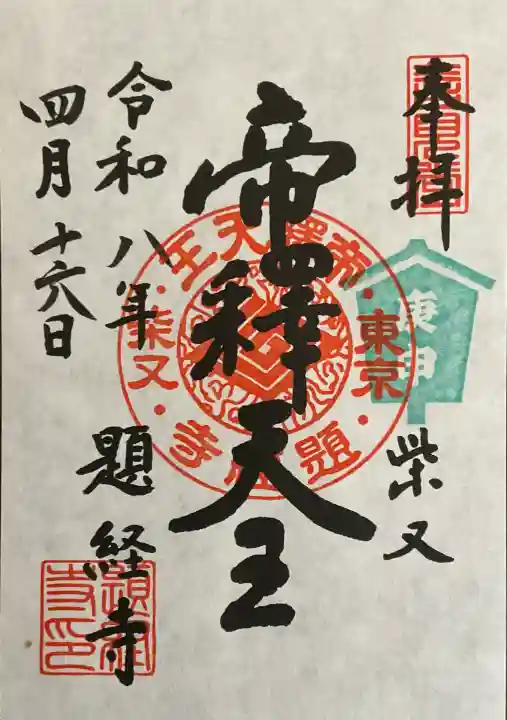 奉拝
柴又
庚申
帝釋天王
帝釋天王
東京
柴又
題経寺
令和八年
四月十六日
題経寺
題経寺印